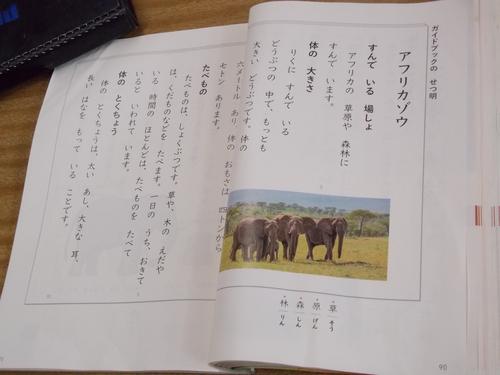 ガイドブックの せつ明
アフリカゾウ
すんで いる 場しょ
アフリカの 草原や 森林に
すんで います。
体の 大きさ
りくに すんで いる
どうぶつの 中で、もっとも
大きい どうぶつです。体の
六メートル あり、体の おもさは 四トンから
七トン あります。
たべもの
たべものは、しょくぶつです。草や、木の えだや
は、くだものなどを たべます。一日の うち、おきて
いる 時間の ほとんどは、たべものを たべて
いると いわれて います。
体の とくちょう
体の とくちょうは、太い あし、大きな 耳、
長い はなを もって いる ことです。
草 そう
原 げん
森 しん
林 りん
90